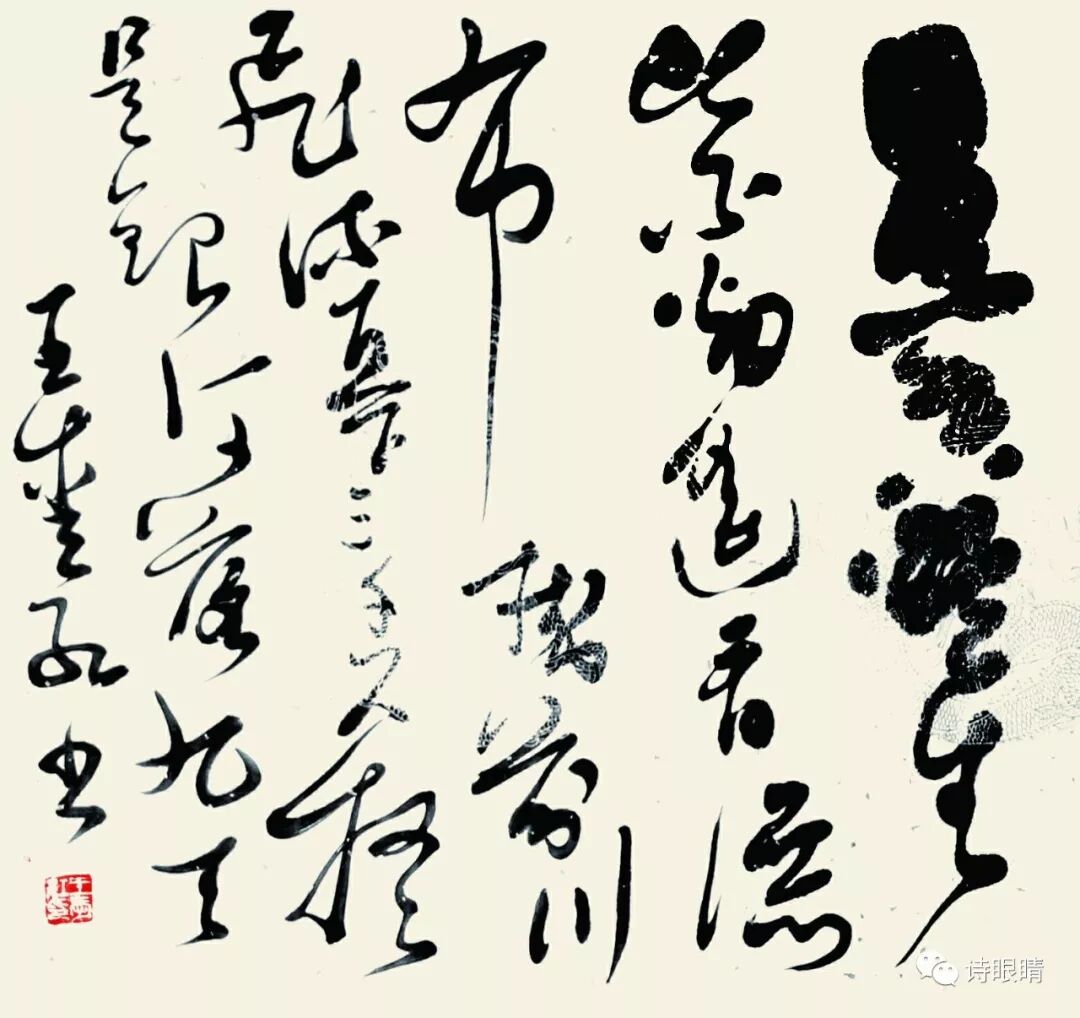 日照香爐生
紫烟遥看瀑
布掛前川
飛流直下三千尺疑
是銀河落九天
王愛紅书
诗眼睛